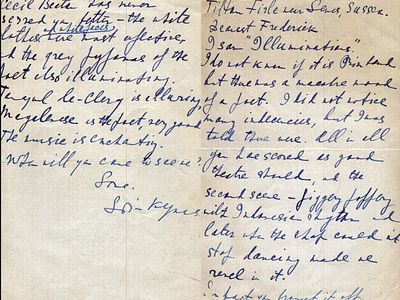 Tilton Firle near Lewes, Sussex.
Dearest Frederick
I saw "Illuminations".
I do not know if it is Rimbaud
but there was a macabre mood
of a poet. I did not notice
many indecencies, but I was
told there were. All in all
you have scored as good
theatre should, and the
second scene – jiggery joffery
with Indonesian rhythm and
later when the chap could not
stop dancing made me
revel in it.
In fact you brought it off
Cecil Beaton has never
served you better – the white
clothes headpieces were most effective,
and the grey pyjamas of the
poet also illuminating.
le-Clerq is alluring,
is the poet very good
The music is enchanting.
When will you come to see me?
Love.
Keynes